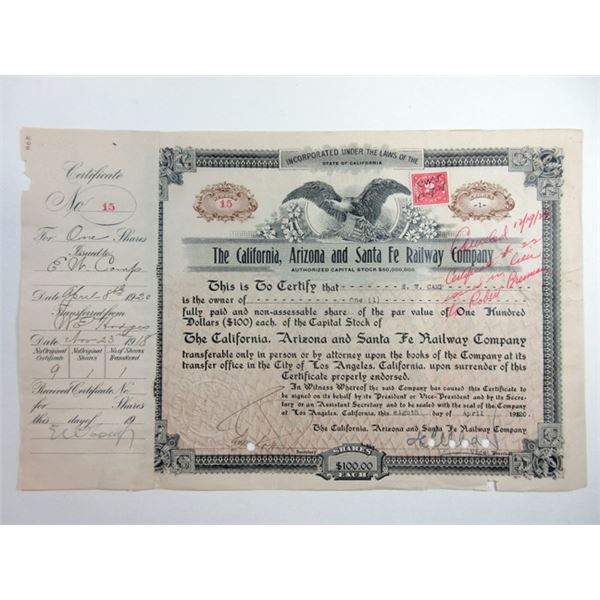 Certificate
No 15
For One Shares
Issued to
E. W. Camp
Date April 8th 1920
Transferred from
Hodges
Date Nov 23 1918
No Original Certificate
No Original Shares
No of Shares Transferred
9 1
Received Certificate No
for Shares
this day of 19
INCORPORATED UNDER THE LAWS OF THE
STATE OF CALIFORNIA
15
SHARES
-1-
The California, Arizona and Santa Fe Railway Company
AUTHORIZED CAPITAL STOCK $50,000,000
This is To Certify that E. W. CAMP
is the owner of One (1)
fully paid and non-assessable share of the par value of One Hundred
Dollars ($100) each, of the Capital Stock of
The California, Arizona and Santa Fe Railway Company
transferable only in person or by attorney upon the books of the Company at its
transfer office in the City of Los Angeles, California, upon surrender of this
Certificate properly endorsed.
In Witness Whereof the said Company has caused this Certificate to
be signed on its behalf by its President or Vice-President and by its Secre-
tary or an Assistant Secretary and to be sealed with the seal of said Company at
Los Angeles, California, this eighth day of April 1920.
The California, Arizona and Santa Fe Railway Company
Secretary
Vice President
SHARES
$100.00
EACH
Cancelled 12/9/22
Certificate # 22
issued in lieu
to Robert Brennan